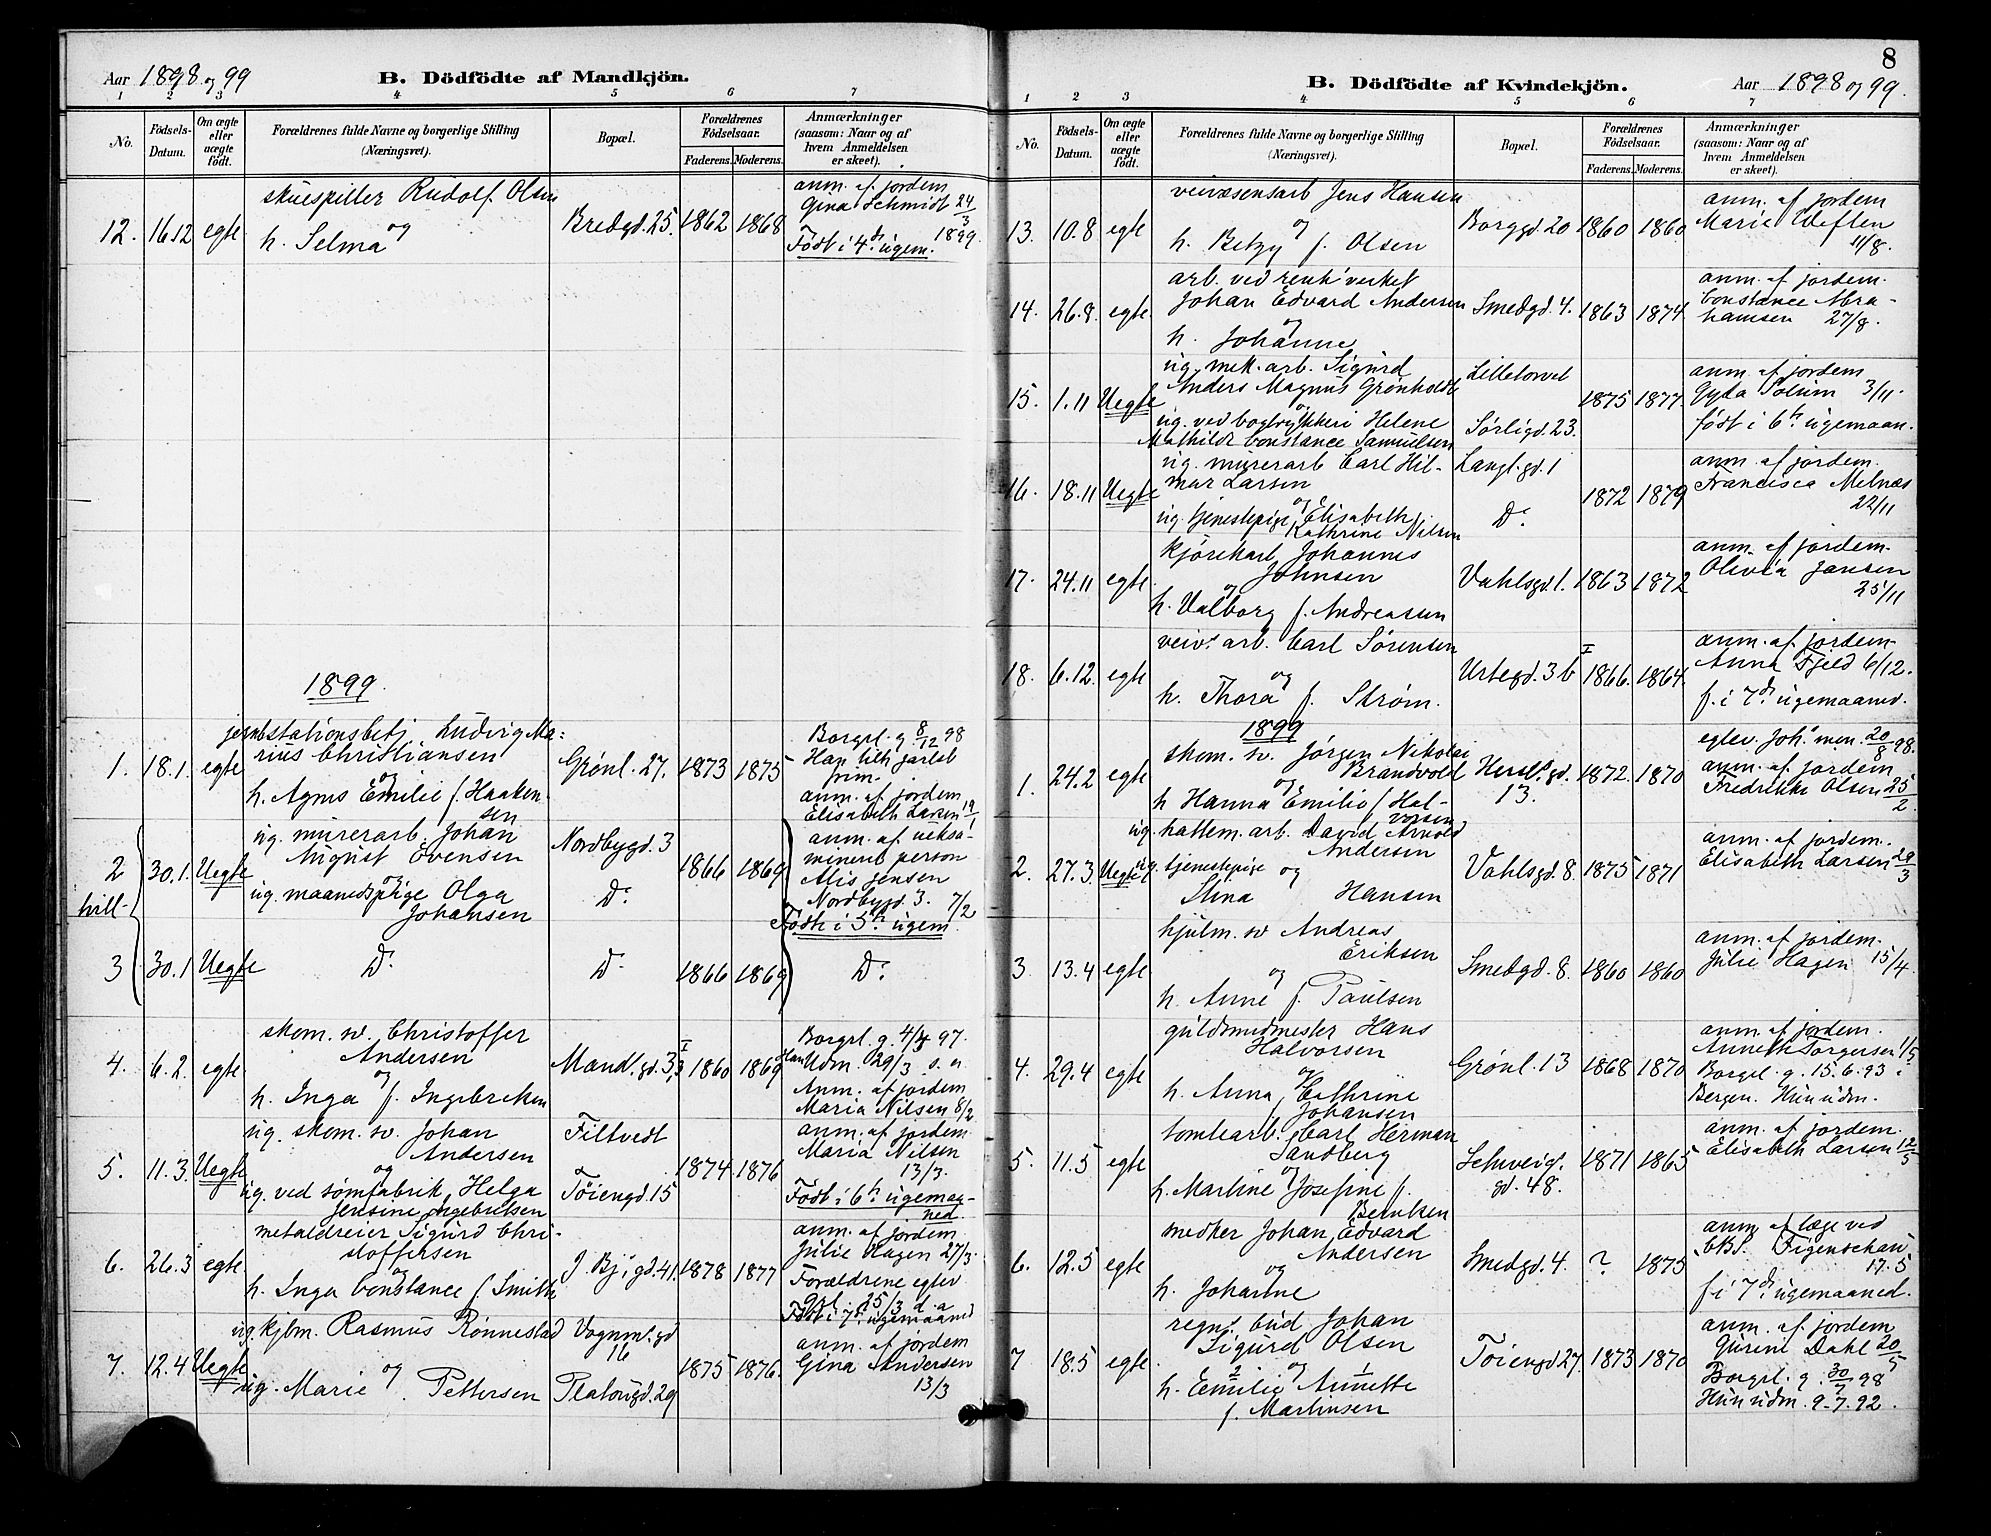 Aar 1898 og 99
B. Dödfödte af Mandkjön.
1 2 3 4 5 6 7
No.
Födsels-Datum.
Om ægte eller uægte födt.
Forældrenes fulde Navne og borgerlige Stilling
(Næringsvei).
Bopæl.
Forældrenes Födselsaar.
Faderens. Moderens.
Anmærkninger
(saasom: Naar og af
hvem Anmeldelsen
er skeet).
12. 16.12 egte
skuespiller Rudolf Olsen
og
h. Selma
Bredgd. 25. 1862 1868
anm. af jordem
Gina Schmidt 24/3
1899.
Födt i 4de. ugem.
1899.
1. 18.1. egte
jernbstationsbetj. Ludvig Ma=
rius Christiansen
og
h. Agnes Emilie f. Haaken-
sen
Grønl. 27. 1873 1875
Borgrl. g. 8/12 98
anm. af jordem
Elisabeth Larsen 19/1
2
tvill-
30.1. Uegte
ug. murerarb. Johan
August Evensen
og
ug. maanedspige Olga
Johansen
Nordbygd. 3
Do.
1866 1869
anm. af ueksa-
mineret person
Alis Jensen
Nordbygd. 3. 7/2
Födt i 5te. ugem.
3 30.1 Uegte
Do. Do. 1866 1869 Do.
4. 6.2. egte
skom. sv. Christoffer
Andersen
og
h. Inga f. Ingebretsen
Mandl. gd. 3, I 1860 1869
Borgrl. g. 4/4 97.
Han Udm. 29/3 s. a.
Anm. af jordem
Maria Nilsen 8/2
5. 11.3. Uegte
ug. skom. sv. Johan
Andersen
og
ug. ved sømfabrik Helga
Jensine Ingebretsen
Filtvedt
Töiengd. 15
1874 1876
anm. af jordem
Maria Nilsen
13/3.
Födt i 6te ugemaa-
ned
6. 26.3 egte
metaldreier Sigurd Chri-
stoffersen
og
h. Inga Constance f. Smith
J. Bj. gd. 41. 1878 1877
anm. af jordem
Julie Hagen 27/3.
Forældrene egtev
25/3 d. a
Födt i 7de. ugemaaned
7. 12.4 Uegte
ug. kjbm. Rasmus Rönnestad
og
ug. Marie Pettersen
Vognm. gd
16
Platougd. 29
1875 1876.
anm. af jordem
Gina Andersen
13/3
8
B. Dödfödte af Kvindekjön.
Aar 1898 og 99.
1 2 3 4 5 6 7
No.
Födsels-Datum.
Om ægte eller uægte födt.
Forældrenes fulde Navne og borgerlige Stilling
(Næringsvei).
Bopæl.
Forældrenes Födselsaar.
Faderens. Moderens.
Anmærkninger
(saasom: Naar og af
hvem Anmeldelsen
er skeet).
13. 10.8 egte
veivæsensarb Jens Hansen
og
h. Betzy f. Olsen
Borggd. 20 1860 1860
anm. af jordem
Marie
11/8.
14. 26.8. egte.
arb. ved renh. verket
Johan Edvard Andersen
og
h. Johanne
Smedgd. 4. 1863 1874
anm. af jordem.
Constance Abra-
hamsen 27/8.
15. 1.11 Uegte
ug. mek. arb. Sigurd
Anders Magnus Grønholdt
og
ug. ved bogtrykkeri Helene
Mathilde Constance Samuelsen
Lilletorvet
Sörligd. 23.
1875 1877.
anm. af jordem
Gyda Solum 3/11.
födt i 6te ugemaan.
16. 18.11 Uegte
ug. murerarb Carl Hil-
mar Larsen
og
ug. tjenestepige Elisabeth
Kathrine Nilsen
Langl. gd. 1
Do.
1872 1879
anm. af jordem.
Francisca Melnæs
22/11
17. 24.11 egte
kjörekarl Johannes
Johnsen
og
h. Valborg f. Andreassen
Vahlsgd. 1. 1863 1872
anm. af jordem.
Olivia Jansen
25/11
18. 6.12. egte
veiv. arb. Carl Sörensen
og
h. Thora f. Ström.
Urtegd. 3 b I 1866. 1864.
anm. af jordem-
Anna Fjeld 6/12.
f. i 7de. ugemaaned.
1899
1. 24.2 egte
skom. sv. Jörgen Nikolai
Brandvold
og
h Hanna Emilie f. Hal-
vorsen
Hersl. gd.
13.
1872. 1870
egtev. Joh. men. 20/8 98.
anm. af jordem
Fredrikke Olsen 25/2.
2. 27.3. Uegte
ug. hattem. arb. David Arvold
Andersen
ug. tjenestepige og
Stina Hansen
Vahlsgd. 8. 1875 1871
anm. af jordem.
Elisabeth Larsen 28/3
3 13.4 egte
hjulm. sv Andreas
Eriksen
og
h. Anne f. Paulsen
Smedgd. 8. 1860 1860
anm. af jordem.
Julie Hagen 15/4.
4. 29.4 egte
guldsmedmester Hans
Halvorsen
og
h. Anna Cathrine
f. Johansen
Grönl. 13 1868 1870
anm. af jordem.
Anneth Torgersen 1/5
Borgrl. g. 15.6.93 i
Bergen. Hun udm.
5. 11.5 egte
tomtearb. Carl Herman
Sandberg
og
h. Martine Josefine f.
Berntsen
Schweig.
gd. 48.
1871 1865
anm. af jordem.
Elisabeth Larsen 12/5
6. 12.5 egte
medker Johan Edvard
Andersen
og
h. Johanne
Smedgd. 4. ? 1875
anm. af læge ved
Figenschau
17.5
f. i 7de. ugemaaned.
7 18.5 egte
regn. bud Johan
Sigurd Olsen
og
h. Emilie Annette
f. Martinsen
Töiengd 27. 1873 1870
anm. af jordem
Gurine Dahl 20/5
Borgrl. g. 30/7 98
Hun udm. 9.7.92.